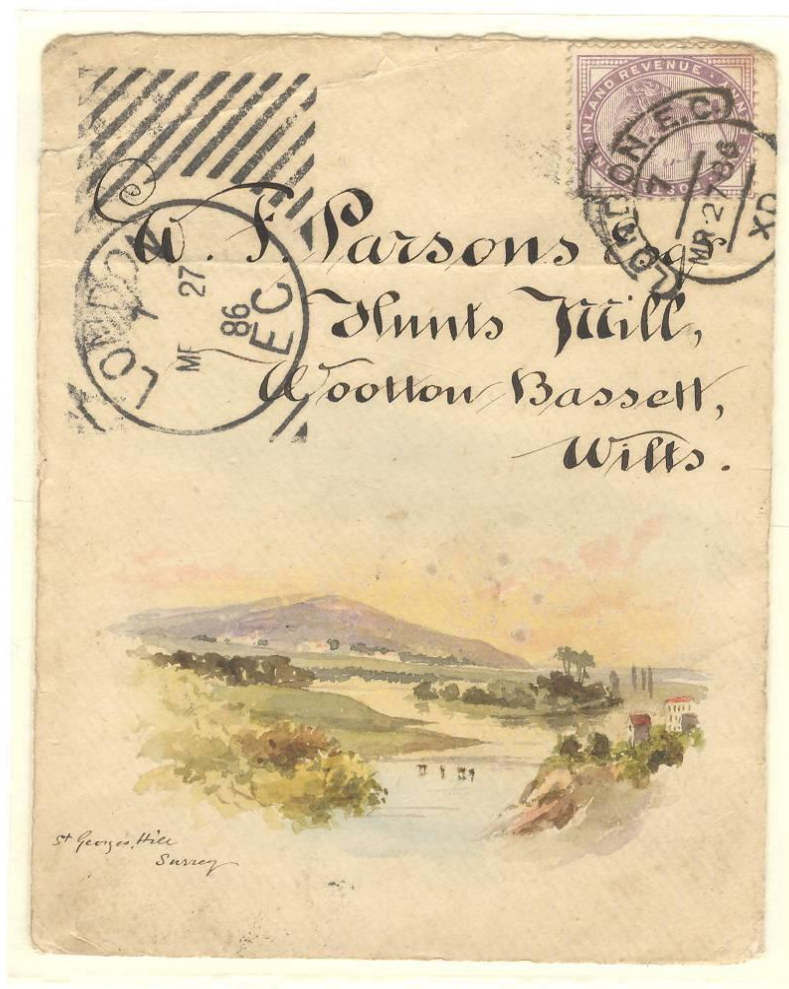 INLAND REVENUE
LONDON. E.C.
7
MR 27 86
XD
LONDON
7
MR
27
86
EC
W. F. Parsons Esqr.
Hunts Mill,
Wootton Bassett,
Wilts.
St Georges Hill
Surrey